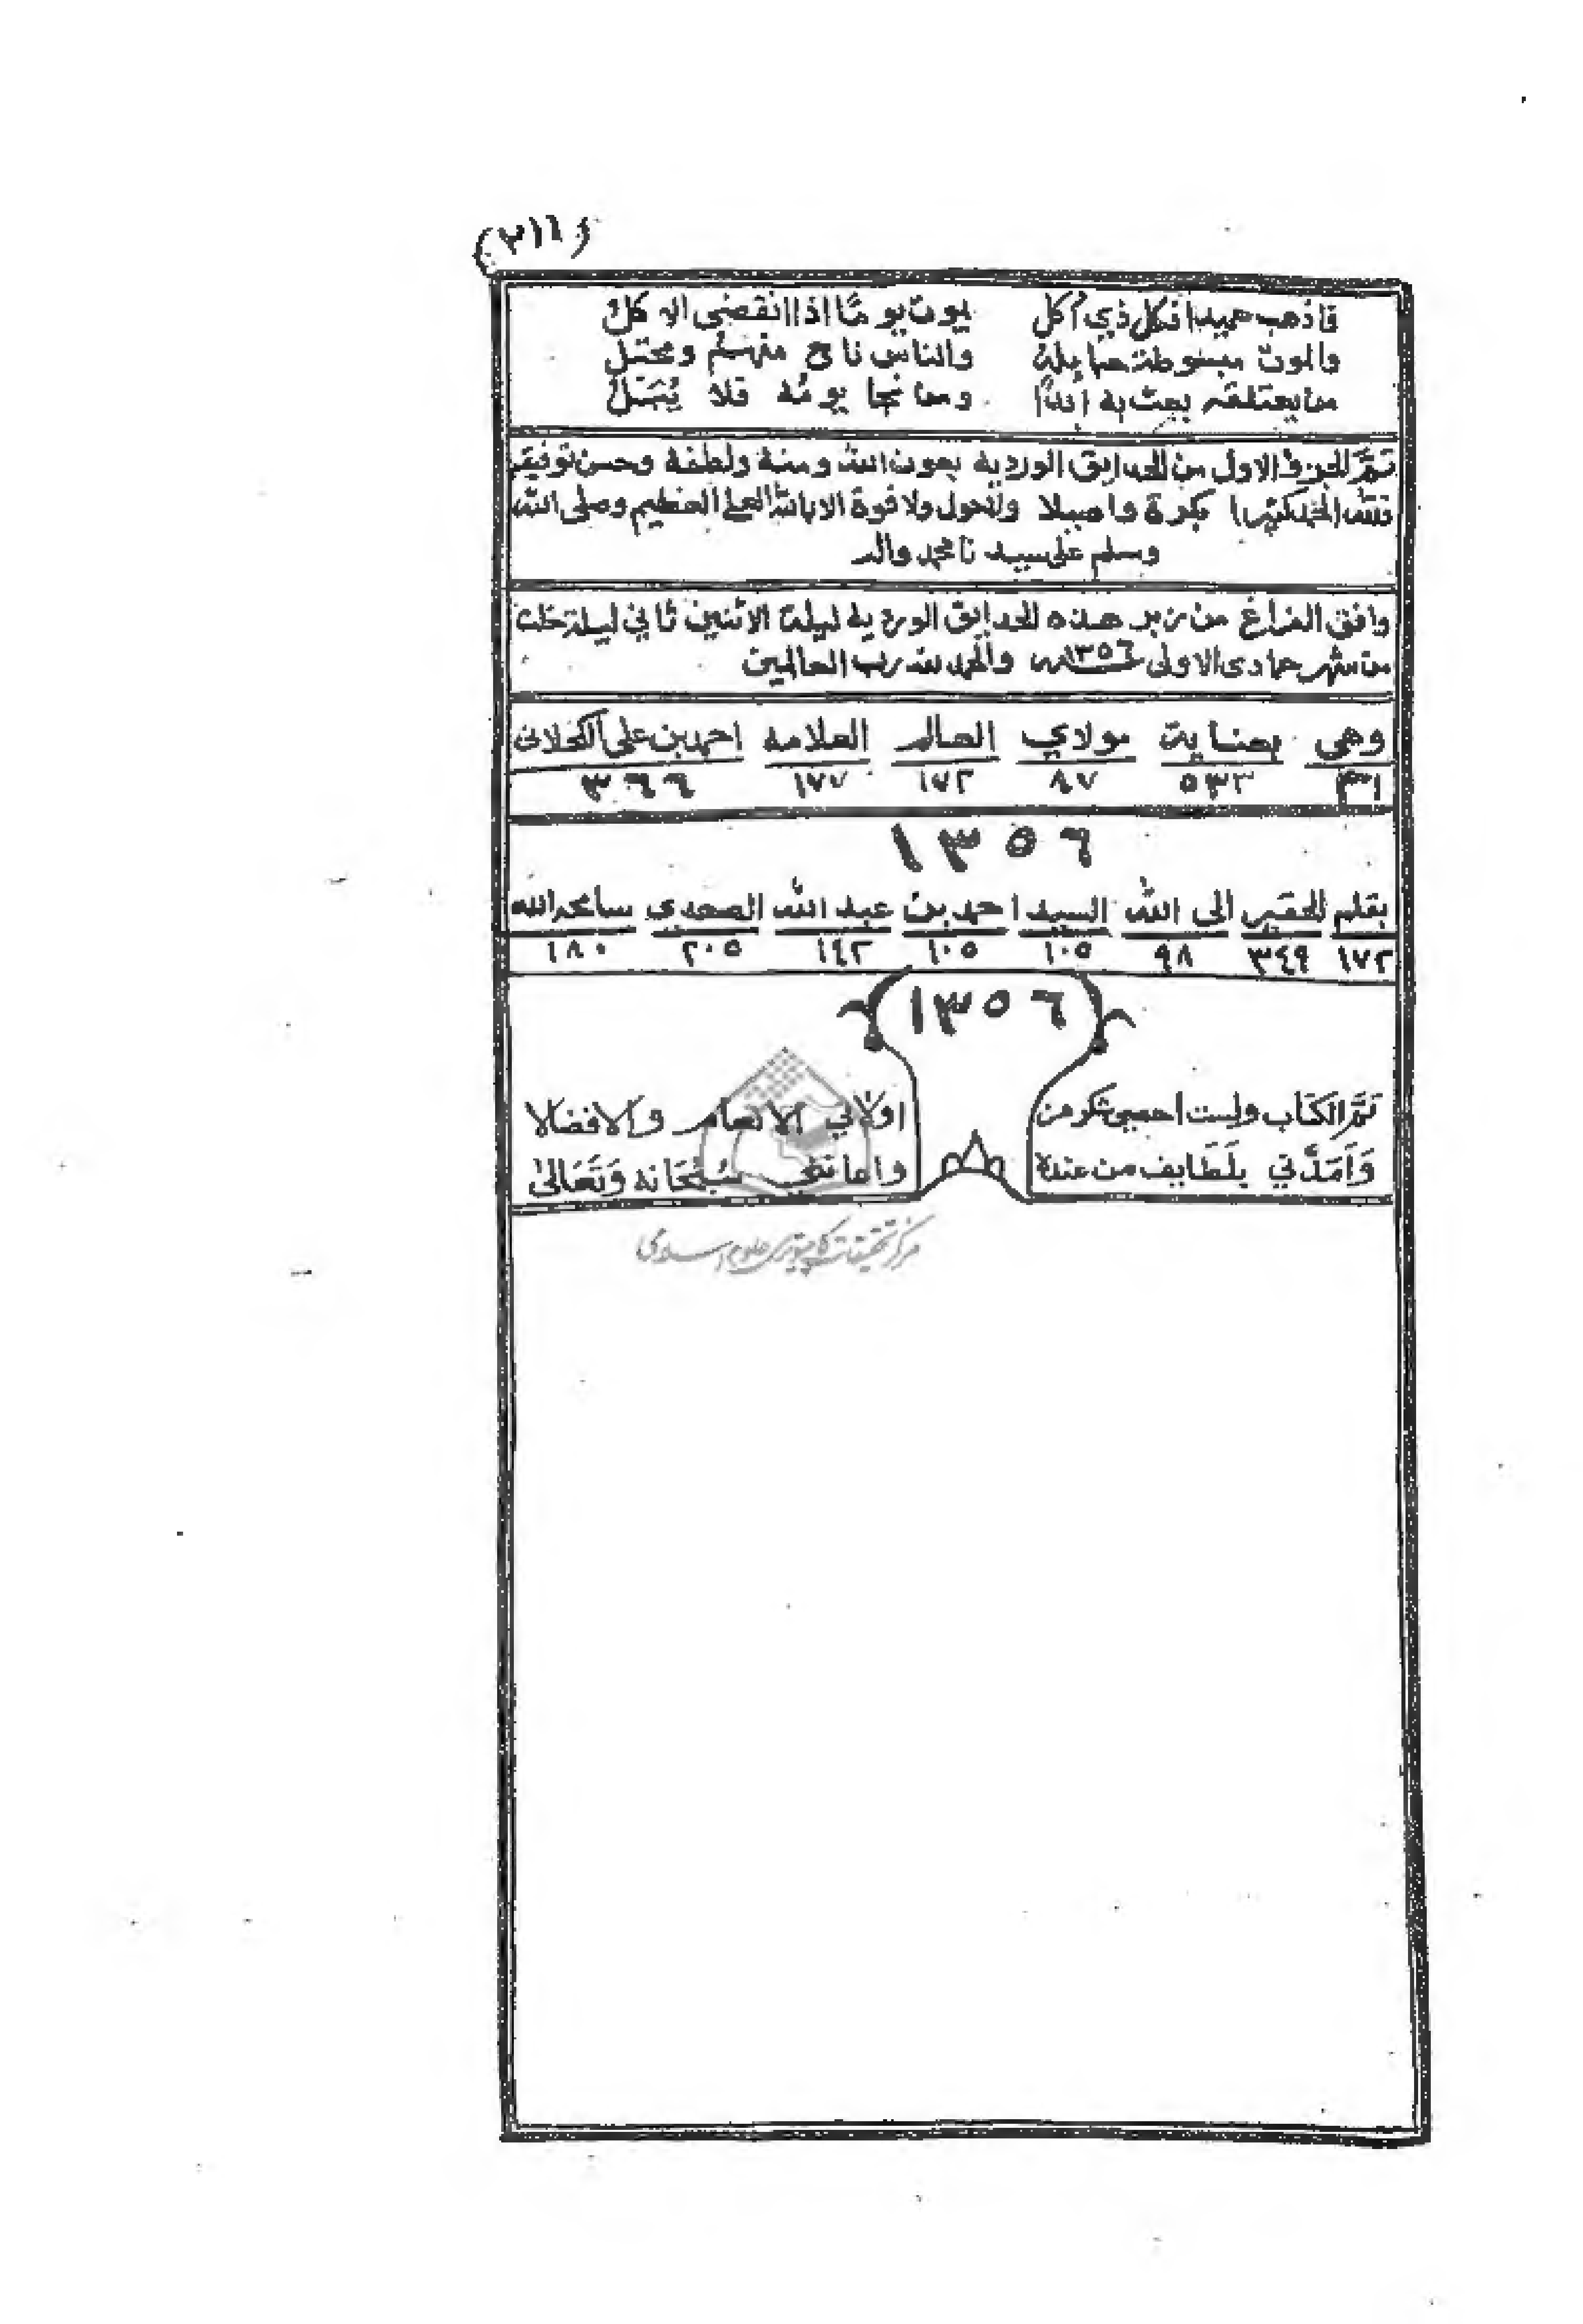 (٢١١)
فاذهب حميدا فكل ذي أكل يموت يوما اذا انقضى الاكل
والموت مبسوطة حبايله والناس ناج منهم ومحتبل
من يعتلقه يمت به أبدا ومن نجا يومه فلا يئل
تمّ الجزء الاول من الحدايق الورديه بعون الله ومنه ولطفه وحسن توفيقه
فلله الحمد كثيرا بكرة واصيلا ولا حول ولا قوة الا بالله العلي العظيم وصلى الله
وسلم على سيدنا محمد واله
وافق الفراغ من زبر هذه الحدايق الورديه ليلة الاثنين ثاني ليلة خلت
من شهر جمادى الاولى سنة ١٣٥٦ والحمد لله رب العالمين
وهي بعناية مولاي العالم العلامه احمد بن علي الكحلاني
٣١ ٥٣٣ ٨٧ ١٧٢ ١٧٧ ٣٦٦
١٣٥٦
بقلم الحقير الى الله السيد احمد بن عبد الله الصعدي سامحه الله
١٧٢ ٣٤٩ ٩٨ ١٠٥ ١٠٥ ١٤٢ ٢٠٥ ١٨٠
١٣٥٦
تمّ الكتاب ولست احصي شكر من اولاني الانعام والافضالا
وَاَمَدَّني بلَطَايف من عنده واعانني سُبْحَانه وَتَعَالىٰ
مركز تحقيقات كامپيوتری علوم اسلامی